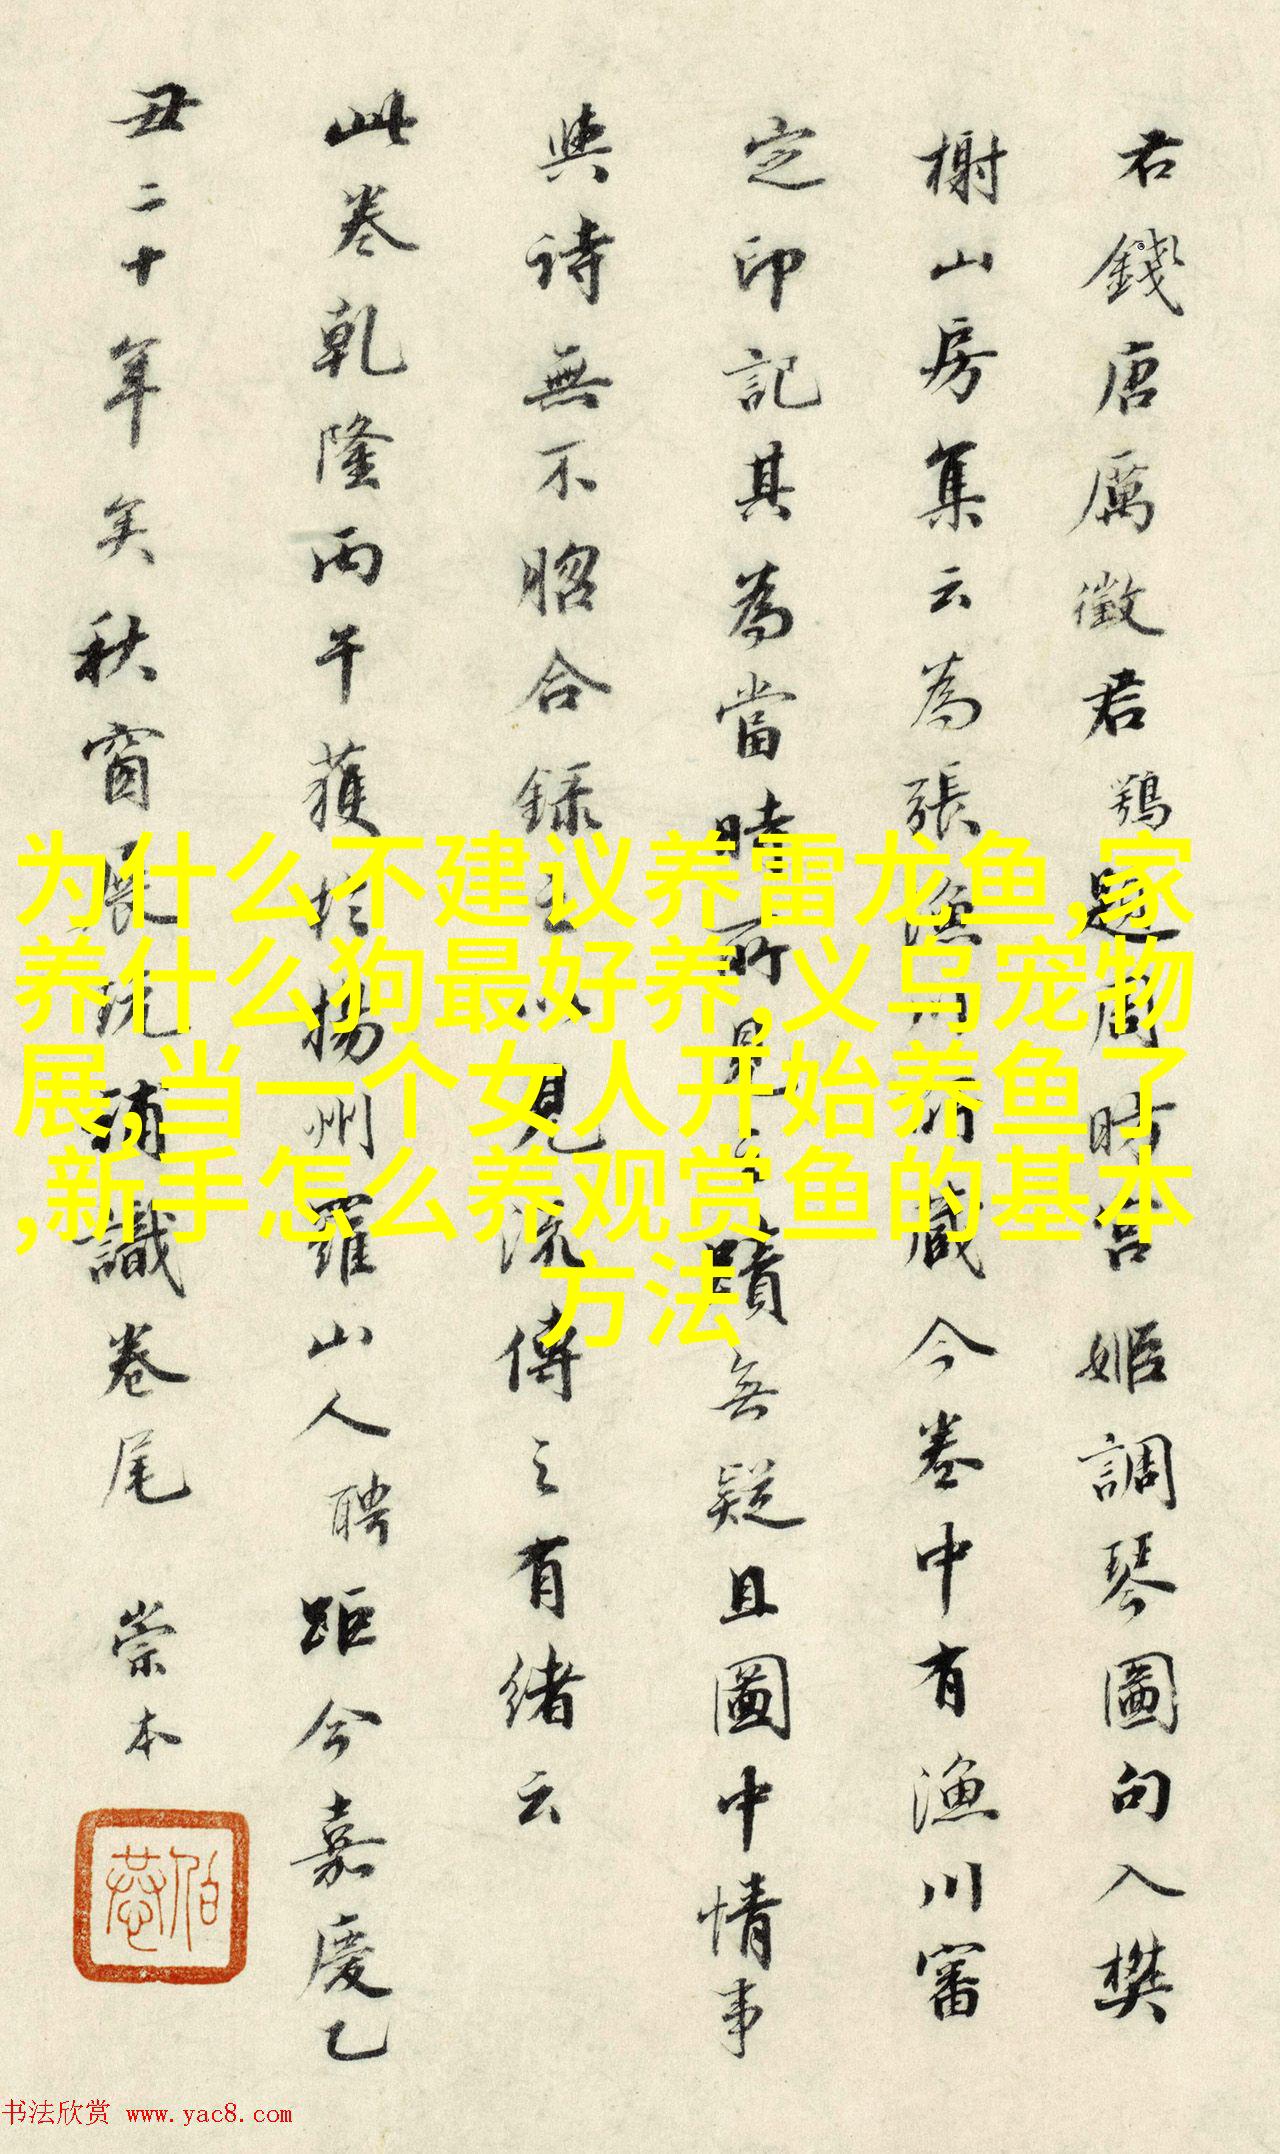 君錢唐厲徵君鶚題周昉宫姬調琴圖句入樊
榭山房集云為張漁川所藏今卷中有漁川審
定印記其為當時所見之蹟無疑且圖中情事
與詩無不脗合録之以見流傳之有緒云
此卷乾隆丙午獲於揚州羅山人聘距今嘉慶乙
丑二十年矣秋窗展玩補識卷尾 崇本
伯恭
为什么不建议养雷龙鱼,家
养什么狗最好养,义乌宠物
展,当一个女人开始养鱼了
,新手怎么养观赏鱼的基本
方法
书法欣赏 www.yac8.com